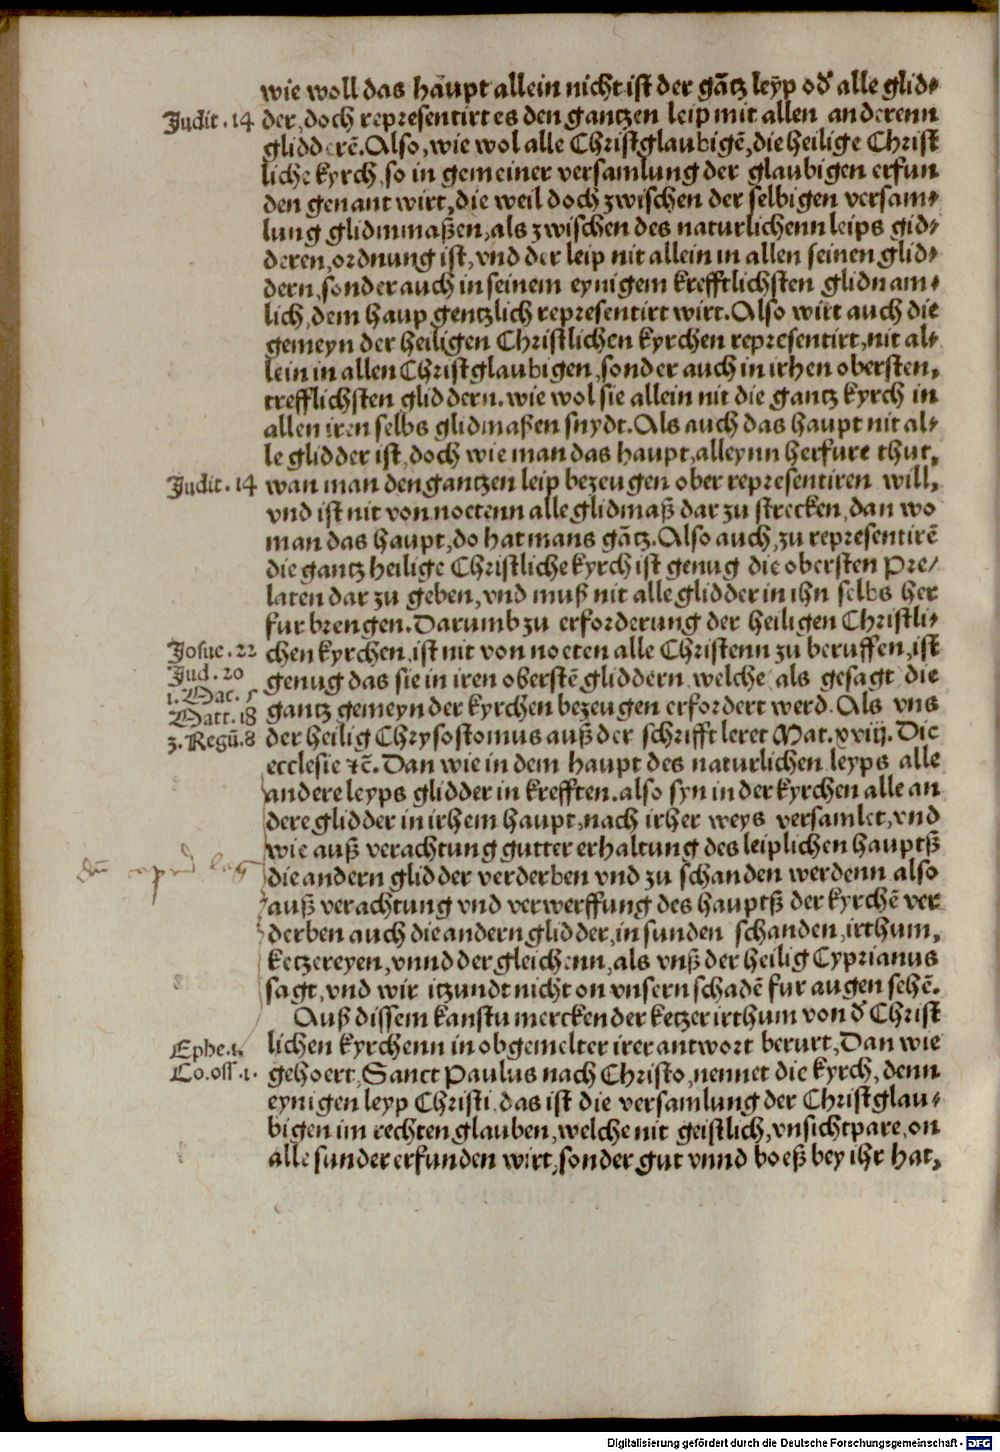 wie woll das häupt allein nicht ist der gātz leyp od' alle glid⸗
Judit . 14 der, doch representirt es den gantzen leip mit allen anderenn
glidderē. Also, wie wol alle Christglaubigē, die heilige Christ
liche kyrch, so in gemeiner versamlung der glaubigen erfun
den genant wirt, die weil doch zwischen der selbigen versam⸗
lung glidmmaßen, als zwischen des naturlichenn leips gid⸗
deren, ordnung ist, vnd der leip nit allein in allen seinen glid⸗
dern, sonder auch in seinem eynigem krefftlichsten glidnam⸗
lich, dem haup gentzlich representirt wirt. Also wirt auch die
gemeyn der heiligen Christlichen kyrchen representirt, nit al⸗
lein in allen Christglaubigen, sonder auch in irhen obersten,
trefflichsten gliddern. wie wol sie allein nit die gantz kyrch in
allen iren selbs glidmaßen snydt. Als auch das haupt nit al⸗
le glidder ist, doch wie man das haupt, alleynn herfure thut,
Judit . 14 wan man den gantzen leip bezeugen ober representiren will,
vnd ist nit von noetenn alle glidmaß dar zu strecken, dan wo
man das haupt, do hat mans gātz. Also auch, zu representirē
die gantz heilige Christliche kyrch ist genug die obersten Pre/
laten dar zu geben, vnd muß nit alle glidder in ihn selbs her
fur brengen. Darumb zu erforderung der heiligen Christli⸗
Josue . 22 chen kyrchen, ist nit von noeten alle Christenn zu beruffen, ist
Jud . 20 genug das sie in iren oberstē gliddern, welche als gesagt die
1. Mac. 5
Matt. 18 gantz gemeyn der kyrchen bezeugen erfordert werd. Als vns
3. Regū. 8 der heilig Chrysostomus auß der schrifft leret Mat. xviij. Die
ecclesie ⁊c̄. Dan wie in dem haupt des naturlichen leyps alle
andere leyps glidder in krefften. also syn in der kyrchen alle an
dere glidder in irhem haupt, nach irher weys versamlet, vnd
wie auß verachtung gutter erhaltung des leiplichen hauptß
die andern glidder verderben vnd zu schanden werdenn also
auß verachtung vnd verwerffung des hauptß der kyrchē ver
derben auch die andern glidder, in sunden schanden, irthum,
ketzereyen, vnnd der gleichenn, als vnß der heilig Cyprianus
sagt, vnd wir itzundt nicht on vnsern schadē fur augen sehē.
Auß dissem kanstu mercken der ketzer irthum von d' Christ
Ephe. 1. lichen kyrchenn in obgemelter irer antwort berurt, Dan wie
Co. oss . 1. gehoert, Sanct Paulus nach Christo, nennet die kyrch, denn
eynigen leyp Christi, das ist die versamlung der Christglau⸗
bigen im rechten glauben, welche nit geistlich, vnsichtpare, on
alle sunder erfunden wirt, sonder gut vnnd boeß bey ihr hat,
Digitalisierung gefördert durch die Deutsche Forschungsgemeinschaft - DFG